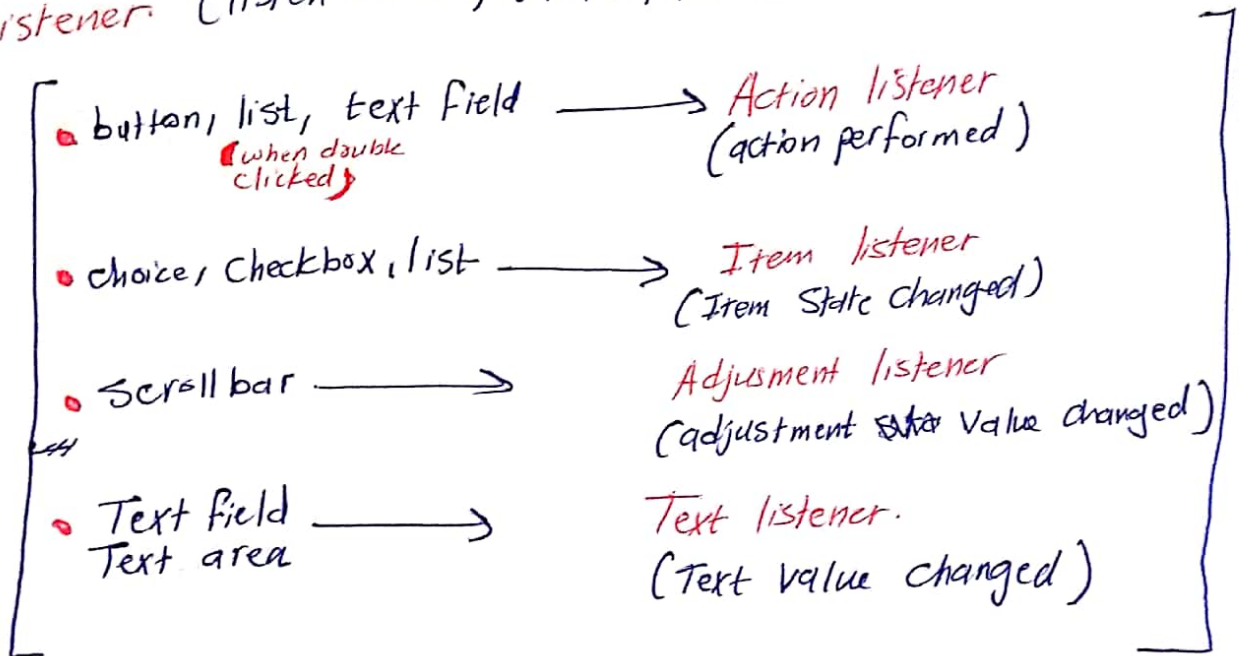 istener.
button, list, text field → Action listener
(when double
clicked)
(action performed)
choice, checkbox, list → Item listener
(Item State changed)
Scroll bar → Adjusment listener
(adjustment Value changed)
Text field → Text listener.
Text area
(Text value changed)